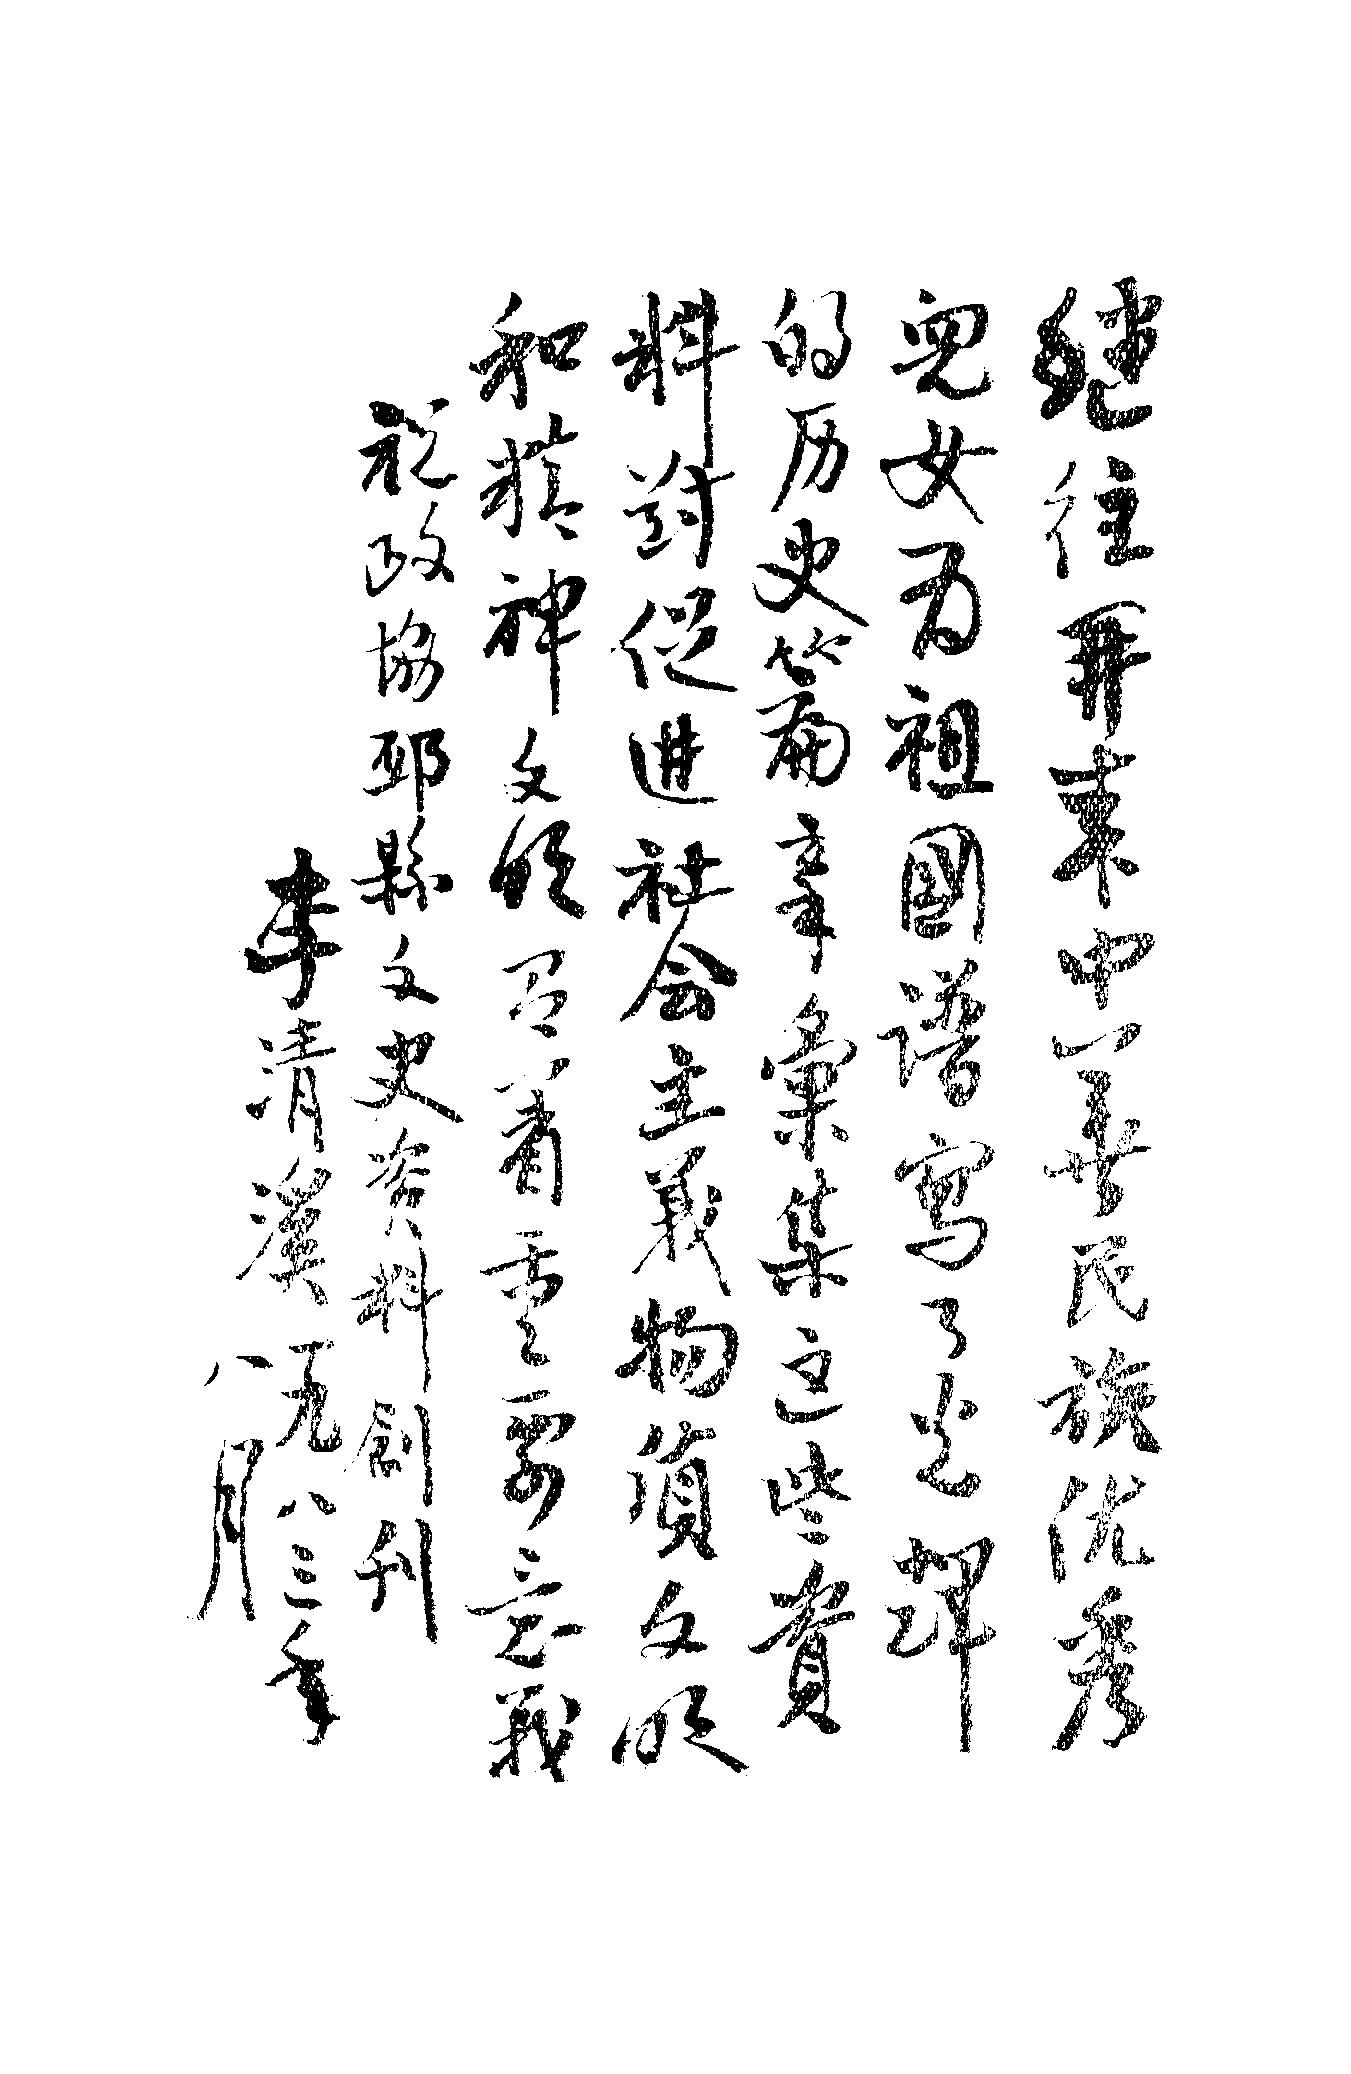 继往开来中华民族优秀
兒女为祖國谱寫了光辉
的历史篇章彙集这些資
料对促進社会主義物質文明
和精神文明有着重要意義
祝政协邳縣文史资料創刊
李清溪一九八三年
八月